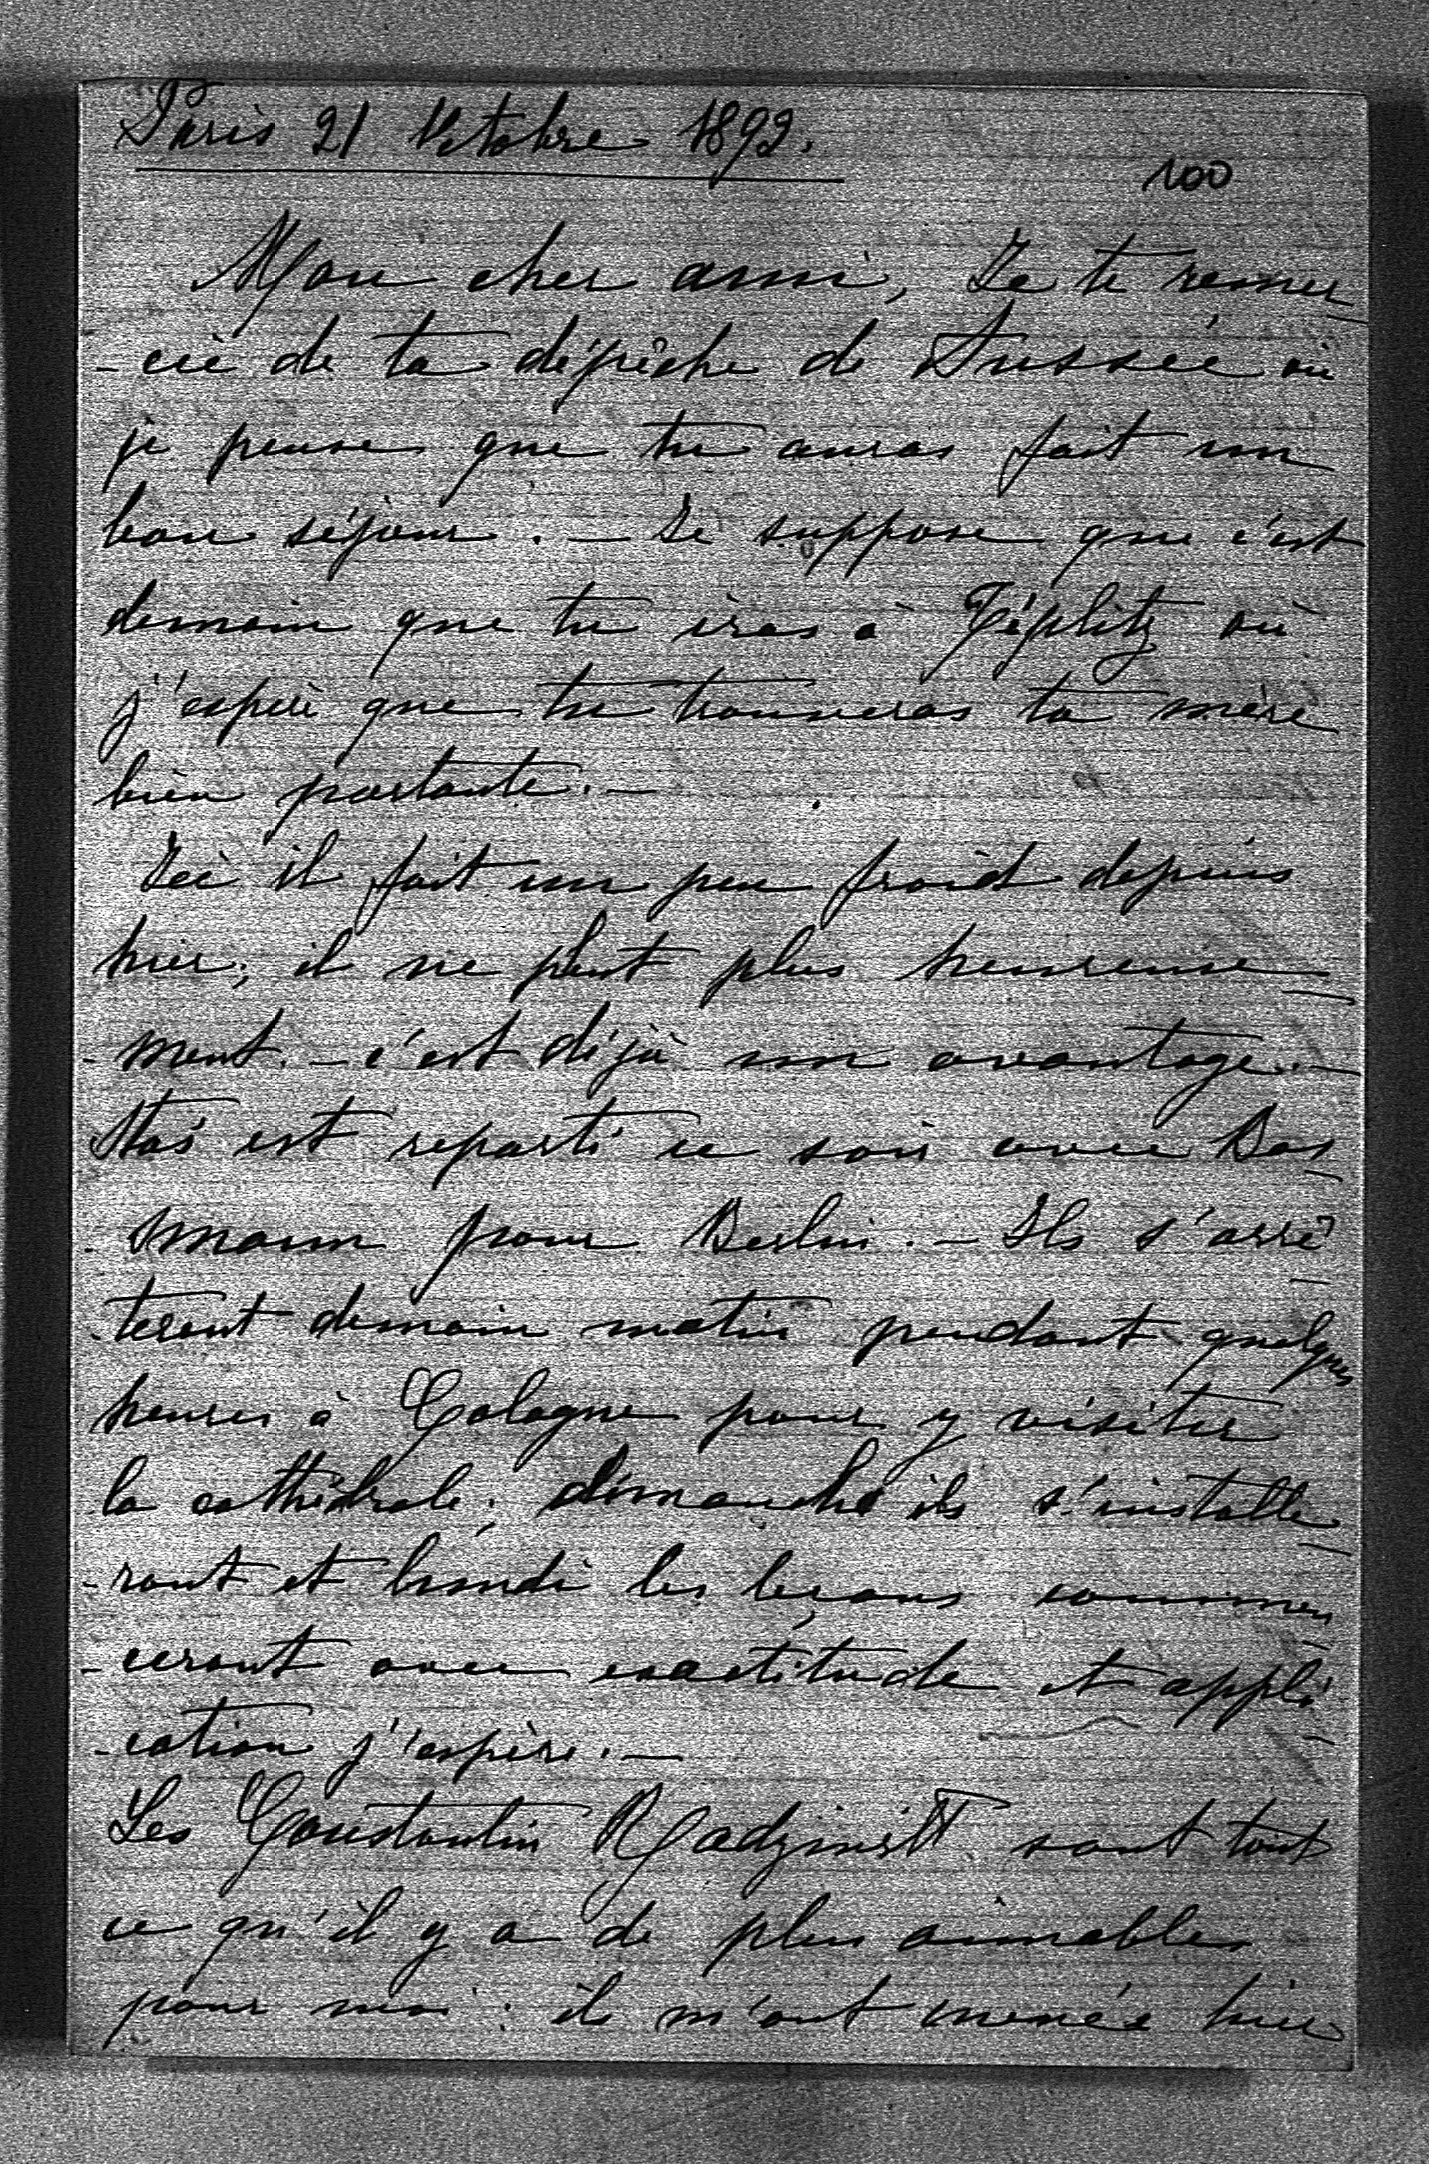 Paris 21 Octobre 1892.
100
Mon cher ami, Je te remer
-cie de ta dépêche de Aussée où
je pense que tu auras fait un
bon séjour. — Je suppose que c'est
demain que tu iras à Téplitz où
j'espère que tu trouveras ta mère
bien portante. —
Ici il fait un peu froid depuis
hier; il ne pleut plus heureuse
-ment. — c'est déjà un avantage. —
Stas est reparti ce soir avec Bas
-smann pour Berlin. — Ils s'arrê
-teront demain matin pendant quelques
heures à Cologne pour y visiter
la cathédrale; dimanche ils s'installe
-ront et lundi les leçons commen
-ceront avec exactitude et appli
-cation j'espère. —
Les Constantin Radziwill sont tout
ce qu'il y a de plus aimables
pour moi: ils m'ont menée hier